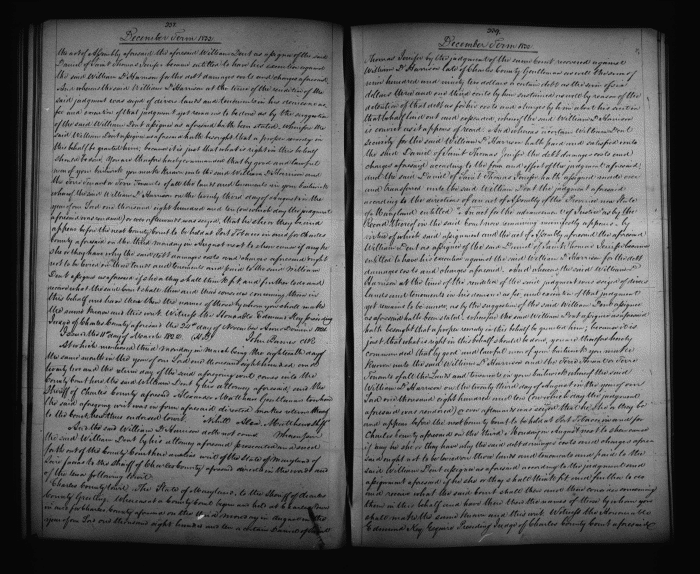 338.
December Term 1822
the act of Assembly aforesaid the aforesaid William Dent as assignee of the said
Daniel of Saint Thomas Jenifer became entitled to have his execution against
the said William D. Harrison for the debt damages costs and charges aforesaid.
And whereas the said William D. Harrison at the time of the rendition of the
said judgment was seized of divers lands and tenements in his demesne as of
fee and execution of that judgment yet remains to be done as by the suggestion
of the said William Dent assignee as aforesaid hath been stated, wherefore the
said William Dent assignee as aforesaid hath besought that a proper remedy in
this behalf be granted him; because it is just that what is right in this behalf
should be done. You are therefore hereby commanded that by good and lawful
men of your bailiwick you make known unto the said William D. Harrison and
the Terre Tenant or Terre Tenants of all the lands and tenements in your bailiwick
whereof the said William D. Harrison on the twenty third day of August in the
year of our Lord one thousand eight hundred and ten (on which day the judgment
aforesaid was rendered) or ever afterwards was seized, that he she or they be and
appear before the next county court to be held at Port Tobacco in and for Charles
county aforesaid on the third Monday in August next to shew cause if any he
she or they have why the said debt damages costs and charges aforesaid ought
not to be levied on those lands and tenements and paid to the said William
Dent assignee as aforesaid if he she or they shall think fit and further to do and
receive what the said court shall then and there consider concerning them in
this behalf and have then there the names of those by whom you shall make
the same known and this writ. Witness the Honorable Edmund Key presiding
Judge of Charles County aforesaid the 24th day of November Anno Domini 1821
Issued the 11th day of March 1822
John Barnes Clk
At which said third Monday in March being the eighteenth day
the same month in the year of our Lord one thousand eight hundred and
twenty two and the return day of the said aforegoing writ comes into the
county court here the said William Dent by his attorney aforesaid, and the
Sheriff of Charles county aforesaid Alexander Matthews Gentleman to whom
the said aforegoing writ was in form aforesaid directed makes return thereof
to the court here thus endorsed to wit
Nihil Alexr Matthews Shff
And the said William D. Harrison cometh not now. Whereupon
the said William Dent by his attorney aforesaid
forth out of the county court here another writ of the State of Maryland of
Scire facias to the Sheriff of Charles county aforesaid directed in the words and
of the tenor following to wit.
Charles county to wit. The State of Maryland, to the Sheriff of Charles
County Greeting. Whereas at a County Court begun and held at Charles Town
in and for Charles County aforesaid on the third Monday in August in the
year of our Lord one thousand eight hundred and ten a certain Daniel of Saint
339.
December Term 1822
Thomas Jenifer by the judgment of the same court recovered against
William D. Harrison late of Charles County Gentleman as well the sum of
nine hundred and ninety ten dollars a certain debt as the sum of six
dollars and one third cents by him sustained as well by reason of the
detention of that debt as for his costs and charges by him about his suit in
that behalf laid out and expended, whereof the said William D. Harrison
is convict as it appears of record. And whereas a certain William Dent
Security for the said William D. Harrison hath paid and satisfied unto
the said Daniel of Saint Thomas Jenifer the debt damages costs and
charges aforesaid according to the form and effect of the judgment aforesaid;
and the said Daniel of Saint Thomas Jenifer hath assigned made over
and transferred unto the said William Dent the judgment aforesaid
according to the directions of an act of Assembly of the Province now State
of Maryland entitled "An act for the advancement of Justice" as by the
Record thereof in the said court here remaining manifestly appears: by
virtue of which said assignment and the act of Assembly aforesaid the aforesaid
William Dent as assignee of the said Daniel of Saint Thomas Jenifer became
entitled to have his execution against the said William D. Harrison for the debt
damages costs and charges aforesaid. And whereas the said William D.
Harrison at the time of the rendition of the said judgment was seized of divers
lands and tenements in his demesne as of fee and execution of that judgment
yet remains to be done as by the suggestion of the said William Dent assignee
as aforesaid hath been stated wherefore the said William Dent assignee as aforesaid
hath besought that a proper remedy in this behalf be granted him; because it is
just that what is right in this behalf should be done, you are therefore hereby
commanded that by good and lawful men of your bailiwick you make
known unto the said William D. Harrison and the Terre Tenant or Terre
Tenants of all the lands and tenements in your bailiwick whereof the said
William D. Harrison on the twenty third day of August in the year of our
Lord one thousand eight hundred and ten (on which day the judgment
aforesaid was rendered) or ever afterwards was seized that he she or they be
and appear before the next county court to be held at Port Tobacco in and for
Charles county aforesaid on the third Monday in August next to shew cause
if any he she or they have why the said debt damages costs and charges afore-
said ought not to be levied on those lands and tenements and paid to the
said William Dent assignee as aforesaid according to the judgment and
assignment aforesaid if he she or they shall think fit and further to do
and receive what the said court shall then and there consider concerning
them in this behalf and have then there the names of those by whom you
shall make the same known and this writ. Witness the Honorable
Edmund Key Esquire Presiding Judge of Charles County Court aforesaid